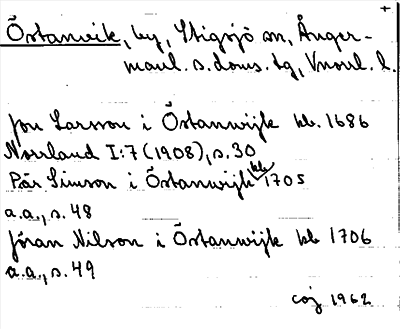 +
Östanvik, by, Stigsjö sn, Ånger-
manl. s. doms. tg, Vnorrl. l.
Jon Larsson i Östanwijk kb. 1686
Norrland I:7 (1908), s. 30
Pär Simson i Östanwijk kb 1705
a.a., s. 48
Jöran Nilson i Östanwijk kb 1706
a.a., s. 49
1962